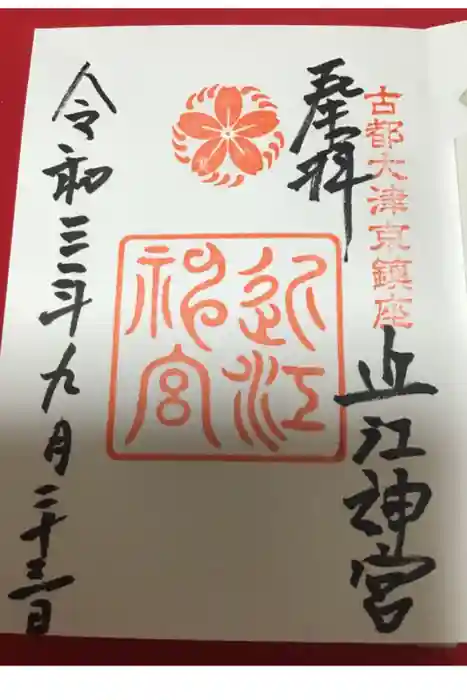 奉拝
古都大津京鎮座
近江神宮
近江
神宮
令和三年九月二十三日